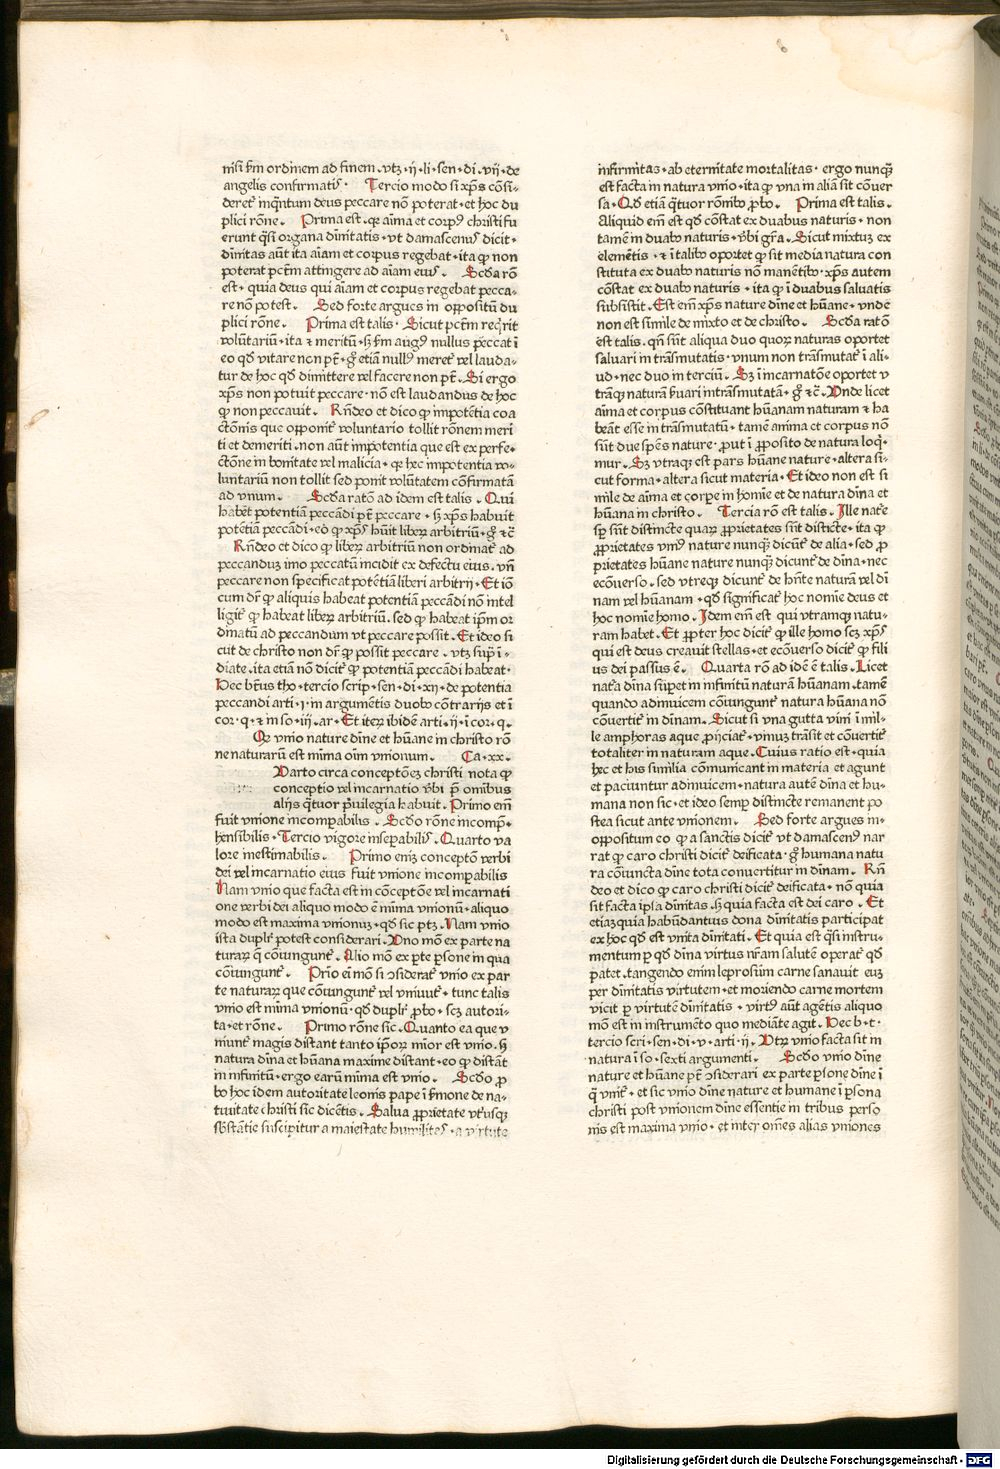 nisi ẜm ordinem ad finem . vtꝫ · ij · li · sen · di · vij · de
angelis confirmatis · Tercio modo si xp̄s cōsi-
deret᷑ inq̄ntum deus peccare nō poterat · et hoc du
plici rōne . Prima est . q̄ aīma et corpꝰ christi fu
erunt q̄si organa diīnitatis · vt damascenꝰ dicit ·
diīnitas aūt ita aīam et corpus regebat · ita ꝙ non
poterat pctm̄ attingere ad aīam eiuꝰ . Scd̄a rō
est · quia deus qui aīam et corpus regebat pecca-
re nō potest . Sed forte argues in oppositū du
plici rōne . Prima est talis · Sicut pctm̄ reqͥrit
volūtariū · ita ⁊ meritū · ſꝫ ẜm augꝰ nullus peccat ī
eo qd̄ vitare non pt̄ · gͦ etiā nullꝰ meret᷑ vel lauda-
tur de hoc qd̄ dimittere vel facere non pt̄ . Si ergo
xp̄s non potuit peccare · nō est laudandus de hoc
ꝙ non peccauit . Rn̄deo et dico ꝙ impotentia coa
ctōnis que opponit᷑ voluntario tollit rōnem meri
ti et demeriti . non aūt impotentia que est ex perfe-
ctōne in bonitate vel malicia · qꝛ hec impotentia vo-
luntariū non tollit sed ponit volūtatem cōfirmatā
ad vnum . Scd̄a ratō ad idem est talis . Qui
habet potentiā peccādi pt̄ peccare · ſꝫ xp̄s habuit
potētiā peccādi · eo ꝙ xp̄s hūit liberꝫ arbitriū · gͦ ⁊c̄
Rn̄deo et dico ꝙ liberꝫ arbitriū non ordinat᷑ ad
peccanduꝫ imo peccatū incidit ex defectu eius . vn̄
peccare non specificat potētiā liberi arbitrij · Et iō
cum dr̄ ꝙ aliquis habeat potentiā peccādi nō intel
ligit᷑ ꝙ habeat liberꝫ arbitriū . sed ꝙ habeat ip̄m or
dinatū ad peccandum vt peccare possit . Et ideo si
cut de christo non dr̄ ꝙ possit peccare . vtꝫ supͥ ī-
diate . ita etiā nō dicit᷑ ꝙ potentiā peccādi habeat ·
Hec btūs tho · tercio scrip · sen · di · xij · de potentia
peccandi arti · j · in argumētis duobꝰ cōtrarijs et ī
cor · q · ⁊ in so · iij · ar · Et iterꝫ ibidē arti · ij · ī cor · q .
Qꝛ vnio nature diīne et hūane in christo rō
ne naturarū est miīma oīm vnionum . Ca · xx .
Varto circa conceptōeꝫ christi nota ꝙ
conceptio vel incarnatio vbi p̄ omibus
alijs qͣtuor pͥuilegia habuit . Primo em̄
fuit vnione incompabilis . Scd̄o rōne incomp̄-
hensibilis · Tercio vigore insepabilis · Quarto va
lore inestimabilis . Primo enīꝫ conceptō verbi
dei vel incarnatio eius fuit vnione incompabilis
Nam vnio que facta est in cōceptōe vel incarnati
one verbi dei aliquo modo ē miīma vnionū · aliquo
modo est maxima vnionuꝫ · qd̄ sic ptꝫ . Nam vnio
ista duplr̄ potest considerari . Vno mō ex parte na
turaꝝ q̄ cōiungunt᷑ . Alio mō ex pte psone in qua
cōiungunt᷑ . Prīo ei mō si ꝯsiderat᷑ vnio ex par
te naturaꝝ que cōiungunt᷑ vel vniunt᷑ · tunc talis
vnio est miīma vnionū · qd̄ duplr̄ ꝓbo · scꝫ autori-
ta · et rōne . Primo rōne sic . Quanto ea que v
niunt᷑ magis distant tanto ip̄oꝝ miīor est vnio . ſꝫ
natura diīna et hūana maxime distant · eo ꝙ distāt
in infinitū · ergo earū miīma est vnio . Scd̄o ꝓ
bo hoc idem autoritate leonis pape ī ẜmone de na-
tiuitate christi sic dicētis . Salua ꝓprietate vtͥusqꝫ
sb̄stantie suscipitur a maiestate humilitas · a virtute
infirmitas · ab eternitate mortalitas · ergo nunqͣ
est facta in natura vnio · ita ꝙ vna in aliā sit cōuer
sa . Qd̄ etiā qͣtuor rōnibꝰ ꝓbo . Prima est talis .
Aliquid em̄ est qd̄ cōstat ex duabus naturis · non
tamē in duabꝰ naturis · vbi grā . Sicut mixtuꝫ ex
elemētis · ⁊ ī talibꝰ oportet ꝙ sit media natura con
stituta ex duabꝰ naturis nō manētibꝰ · xp̄s autem
cōstat ex duabꝰ naturis · ita ꝙ ī duabus saluatis
subsistit . Est em̄ xp̄s nature diīne et hūane · vnde
non est simile de mixto et de christo . Scd̄a ratō
est talis . qn̄ sūt aliqua duo quoꝝ naturas oportet
saluari in trāsmutatis · vnum non trāsmutat᷑ ī ali-
ud · nec duo in terciū . Sꝫ ī incarnatōe oportet v
trāqꝫ naturā ẜuari intrāsmutatā · gͦ ⁊c̄ . Vnde licet
aīma et corpus cōstituant hūanam naturam ⁊ ha
beāt esse in trāsmutatū · tamē anima et corpus nō
sūt due spēs nature · ꝓut ī ꝓposito de natura loqͥ-
mur . Sꝫ vtraqꝫ est pars hūane nature · altera si-
cut forma · altera sicut materia · Et ideo non est si
mile de aīma et corpe in homīe et de natura diīna et
hūana in christo . Tercia rō est talis . Ille nat᷑e
sp̄ sūt distincte quaꝝ ꝓprietates sūt disticte · ita ꝙ
ꝓprietates vniꝰ nature nunqͣ dicūt᷑ de alia · sed ꝓ
prietates hūane nature nunqͣ dicunt᷑ de diīna · nec
ecōuerso . sed vtreqꝫ dicunt᷑ de hn̄te naturā vel di
nam vel hūanam · qd̄ significat᷑ hoc nomīe deus et
hoc nomīe homo . Idem em̄ est qui vtramqꝫ natu-
ram habet . Et ꝓpter hoc dicit᷑ ꝙ ille homo scꝫ xp̄s
qui est deus creauit stellas · et ecōuerso dicit᷑ ꝙ fili
us dei passus ē . Quarta rō ad idē ē talis . Licet
nat᷑a diīna suppet in infinitū naturā hūanam . tamē
quando adinuicem cōiungunt᷑ natura hūana nō
cōuertit᷑ in diīnam . Sicut si vna gutta vini ī mil-
le amphoras aque ꝓijciat᷑ · vinuꝫ trāsit et cōuertit᷑
totaliter in naturam aque . Cuius ratio est · quia
hec et his similia cōmunicant in materia et agunt
et paciuntur adinuicem · natura autē diīna et hu-
mana non sic · et ideo semp distincte remanent po
stea sicut ante vnionem . Sed forte argues in
oppositum eo ꝙ a sanctis dicit᷑ vt damascenꝰ nar
rat ꝙ caro christi dicit᷑ deificata · gͦ humana natu
ra cōiuncta diīne tota conuertitur in diīnam . Rn̄
deo et dico ꝙ caro christi dicit᷑ deificata · nō quia
sit facta ipsa diīnitas . ſꝫ quia facta est dei caro . Et
etiaꝫ quia habūdantius dona diīnitatis participat
ex hoc qd̄ est vnita diīnitati . Et quia est q̄si instru-
mentum ꝑ qd̄ diīna virtus nr̄am salutē operat᷑ qd̄
patet . tangendo enim leprosūm carne sanauit euꝫ
per diīnitatis virtutem · et moriendo carne mortem
vicit ꝑ virtutē diīnitatis · virtꝰ aūt agētis aliquo
mō est in instrumēto quo mediāte agit . Hec b · t ·
tercio scri · sen · di · v · arti · ij . Vtrꝫ vnio facta sit in
natura ī so · sexti argumenti . Scd̄o vnio diīne
nature et hūane pt̄ ꝯsiderari ex parte psone diīne ī
q̄ vnit᷑ · et sic vnio diīne nature et humane ī psona
christi post vnionem diīne essentie in tribus perso
nis est maxima vnio · et inter om̄es alias vniones
Digitalisierung gefördert durch die Deutsche Forschungsgemeinschaft - DFG